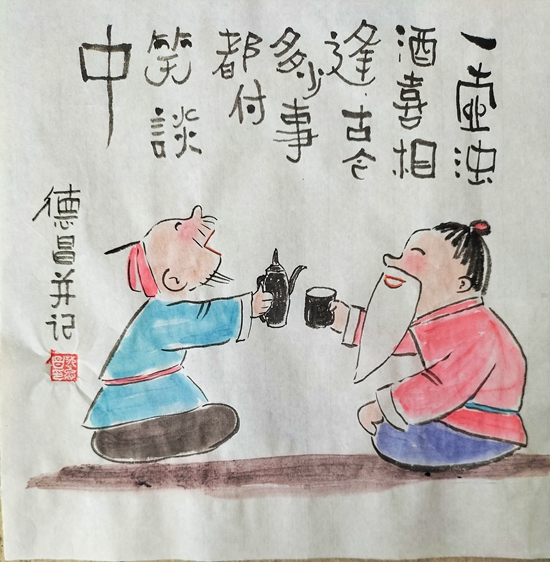 一壶浊
酒喜相
逢古今
多少事
都付
笑談
中
德昌并记